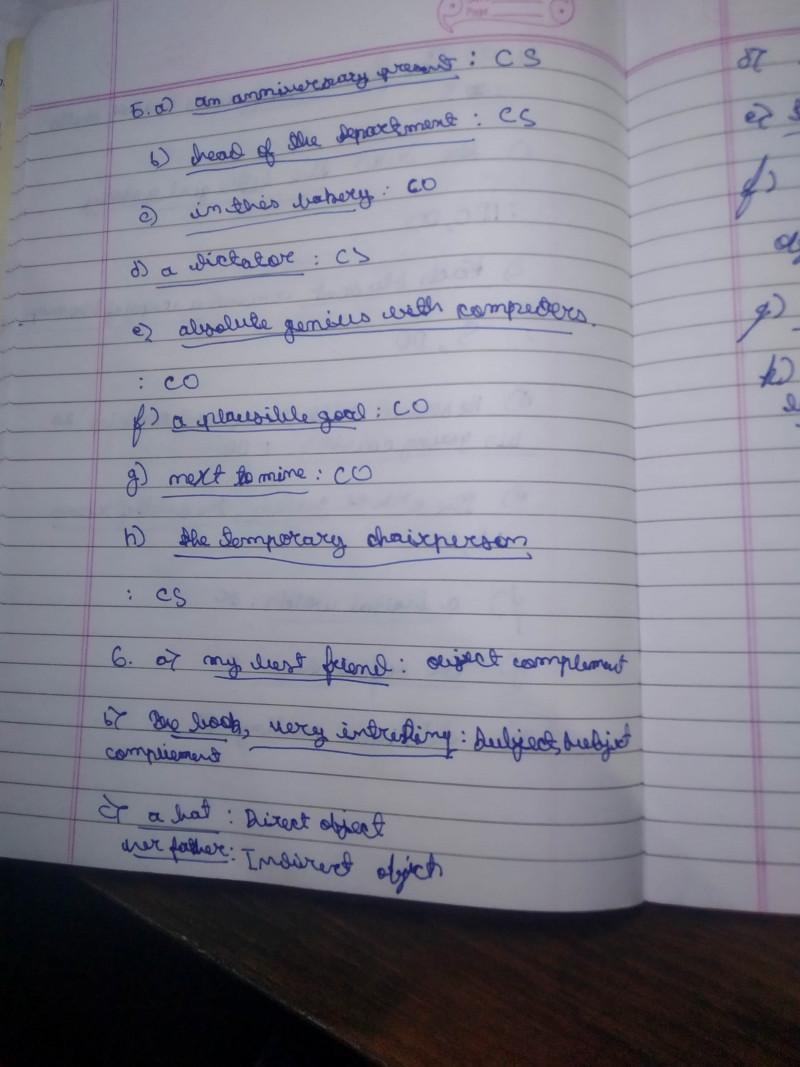 5. a) an anniversary present : CS
b) head of the department : CS
c) in this bakery : CO
d) a dictator : CS
e) absolute genius with computers.
: CO
f) a plausible goal : CO
g) next to mine : CO
h) the temporary chairperson
: CS
6. a) my best friend : object complement
b) the book, very intresting : Subject, Subject
complement
c) a hat : Direct object
her father : Indirect object
d)
e)
f)
g)
h)